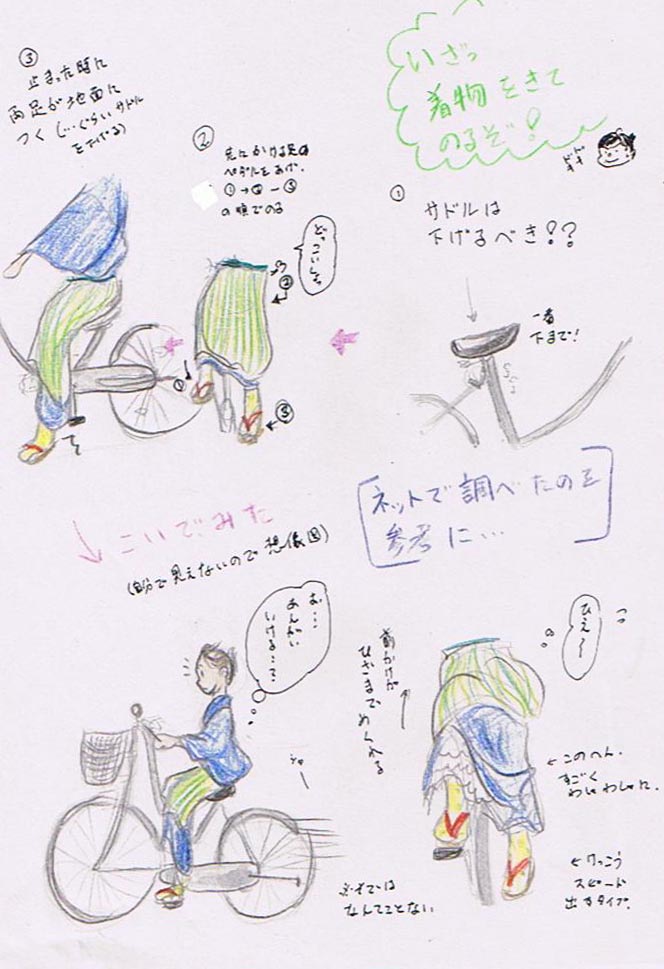 いざっ
着物をきて
のるぞ!
ドキ
ドキ
①
サドルは
下げるべき!?
一番
下まで!
②
先にかける足の
ペダルをあげ、
①→②→③
の順でのる
どっこいしょ
②
①
③
③
止まった時に
両足が地面に
つくくらいサドル
を下げる)
[ネットで調べたのを
参考に…]
こいでみた
(自分で見えないので想像図)
お…
あんがい
いける…?
シャー
ひえ〜
前かけが
ひざまでめくれる
←このへん、
すごく
わしゃわしゃした。
←けっこう
スピード
出すタイプ。
なんてことない。